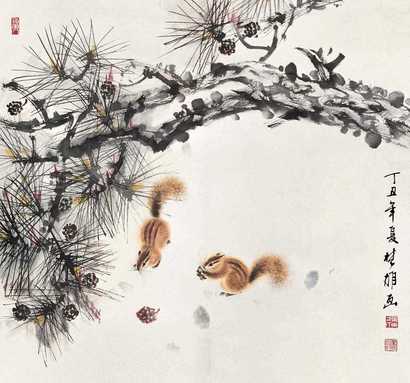 丁丑年夏楚雄画